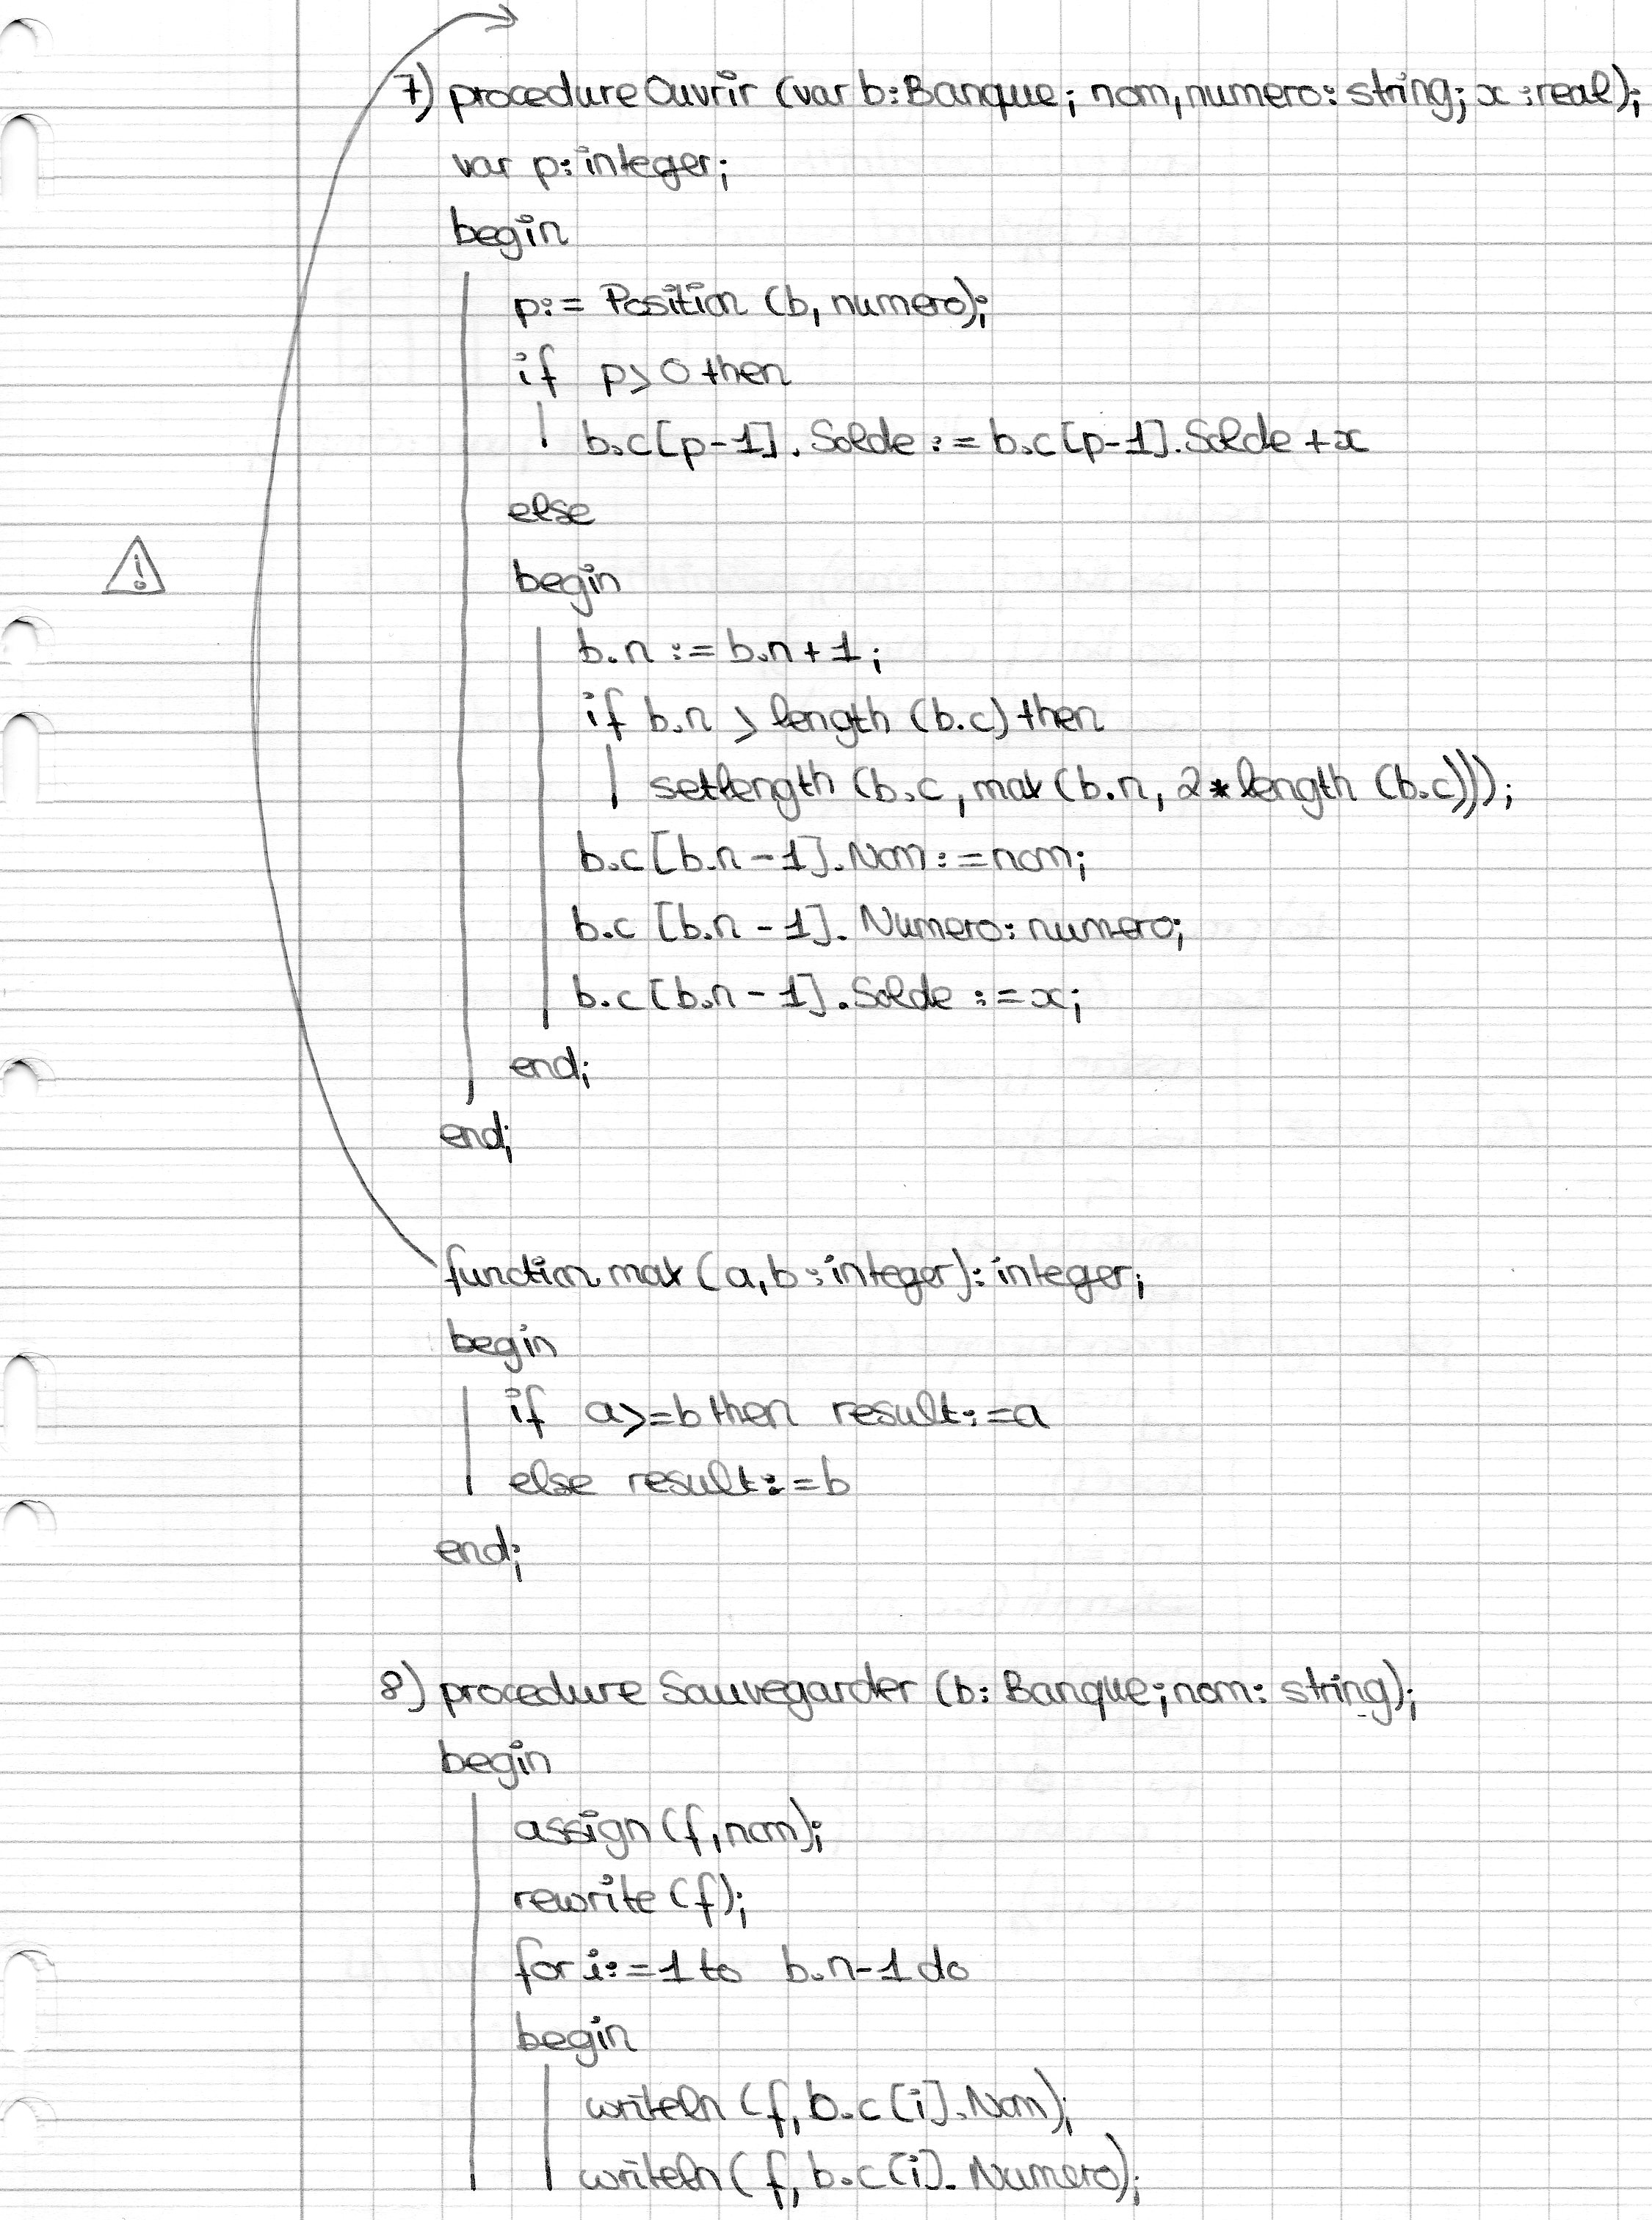 7) procedure Ouvrir (var b: Banque; nom, numero: string; x : real);
var p: integer;
begin
p:= Position (b, numero);
if p>0 then
b.c[p-1].Solde := b.c[p-1].Solde +x
else
begin
b.n := b.n+1;
if b.n > length (b.c) then
setlength (b.c, max (b.n, 2*length (b.c)));
b.c[b.n-1].Nom := nom;
b.c [b.n-1]. Numero: numero;
b.c[b.n-1].Solde := x;
end;
end;
function max (a, b : integer): integer;
begin
if a>=b then result:=a
else result:=b
end;
8) procedure Sauvegarder (b: Banque; nom: string);
begin
assign (f, nom);
rewrite (f);
for i:=1 to b.n-1 do
begin
writeln (f, b.c[i].Nom);
writeln (f, b.c[i]. Numero);